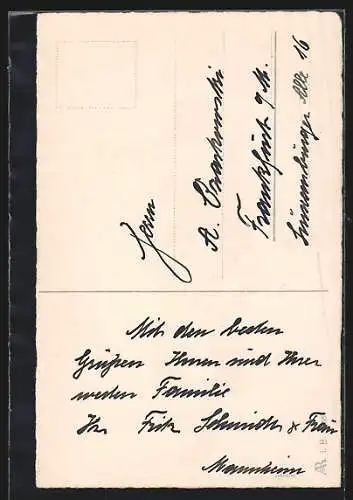 Herrn
A. Craskowski
Frankfurt a/M.
Luxemburger Alle 16
Mit den besten
Grüßen Ihnen und Ihrer
werten Familie
Ihr Fritz Schmidt & Frau
Mannheim